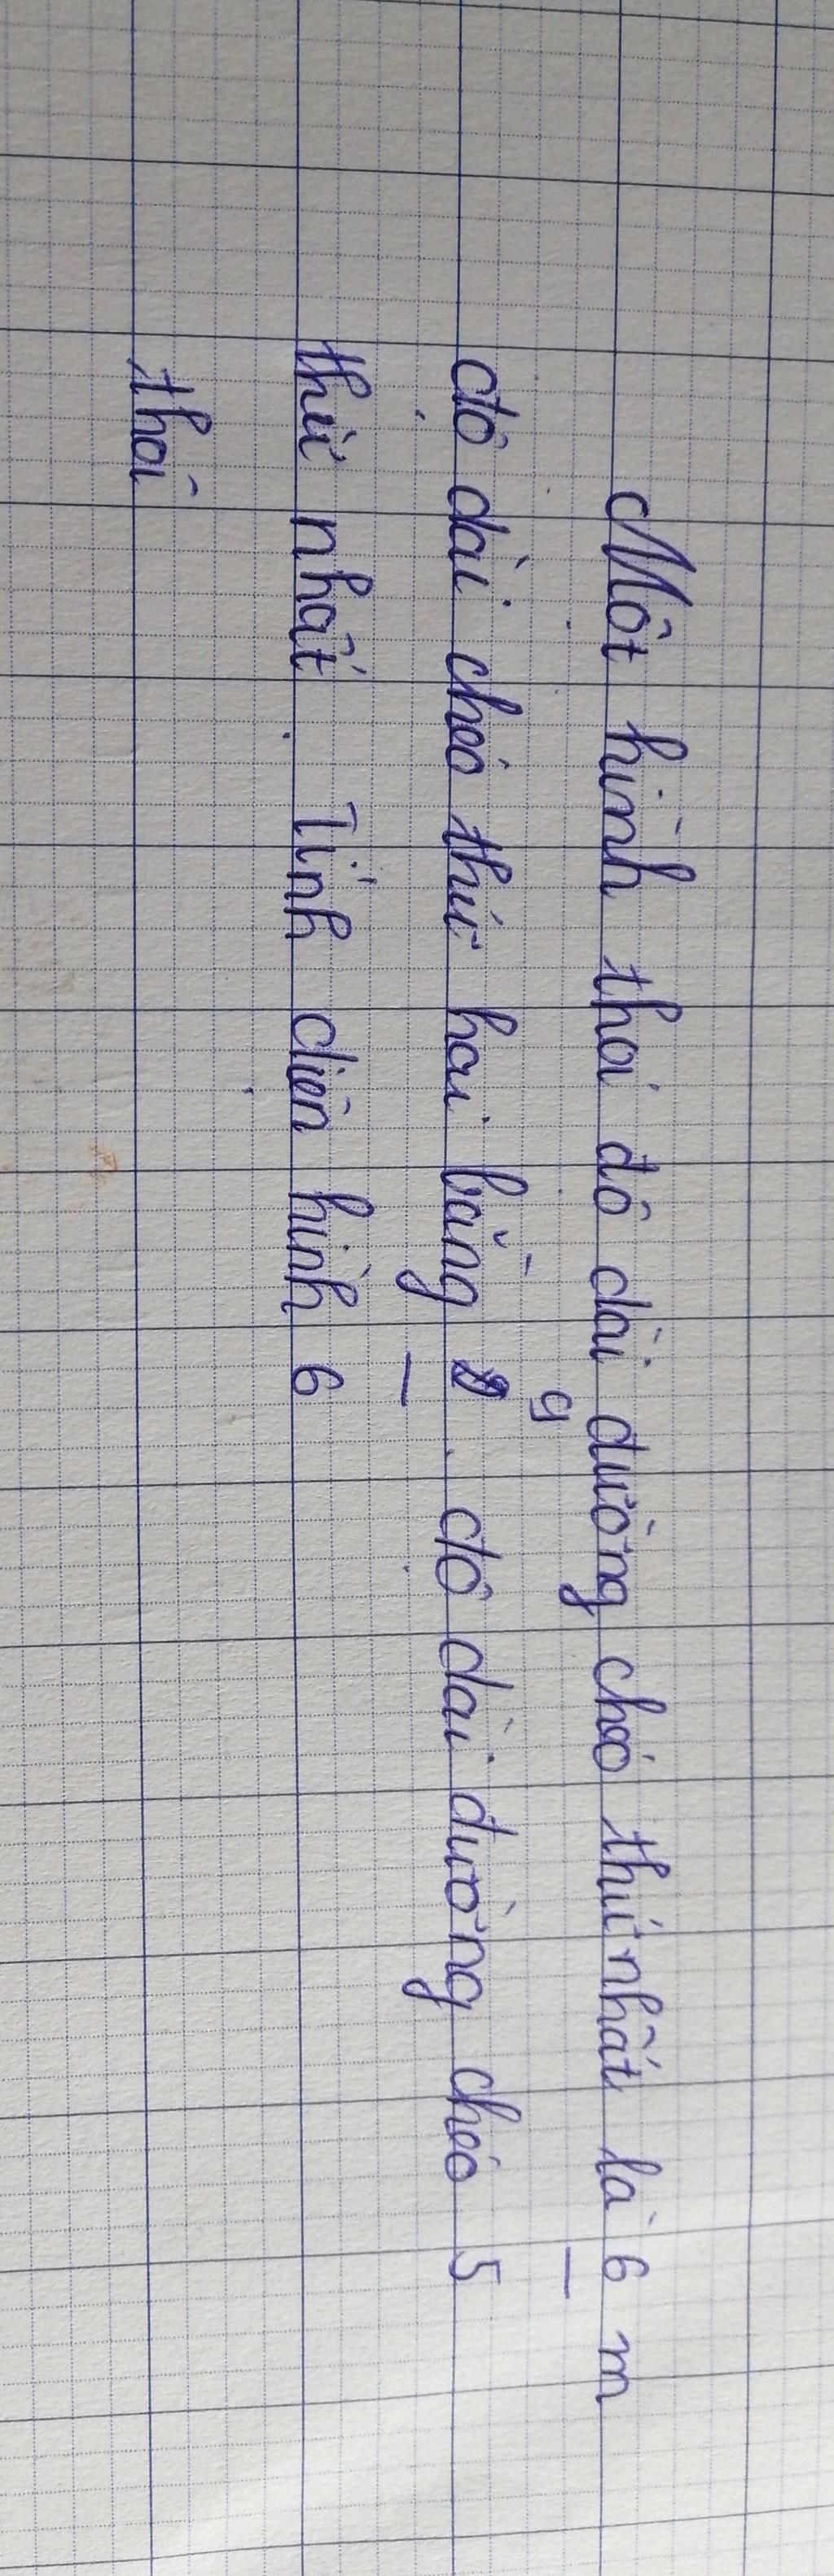 Một hình thoi độ dài đường chéo thứ nhất là 6 m
9
độ dài chéo thứ hai bằng . độ dài đường chéo 5
thứ nhất . Tính diện hình 6
thoi